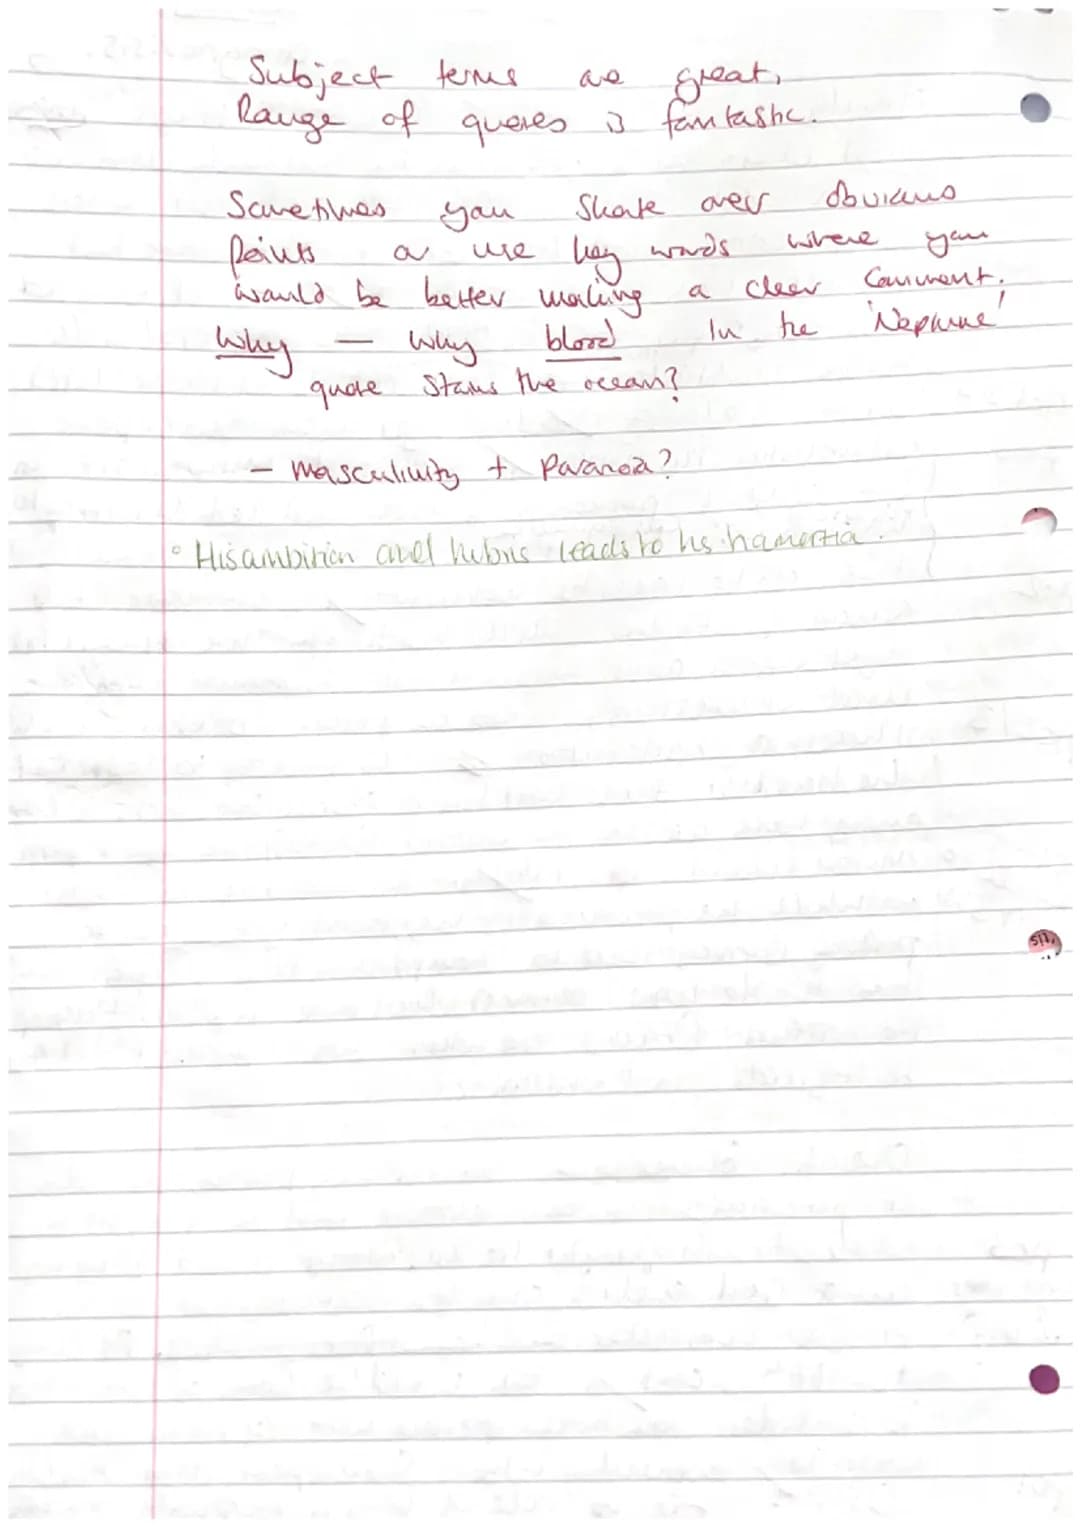 Subject terms are great,
Range of quotes is fantastic.
Sometimes you skate over obvious
points or use key words where you
would be better making a clear comment.
Why – why blood in the 'Neptune'
quote stains the ocean?
– masculinity + Paranoia?
◦ His ambition and hubris leads to his hamertia.